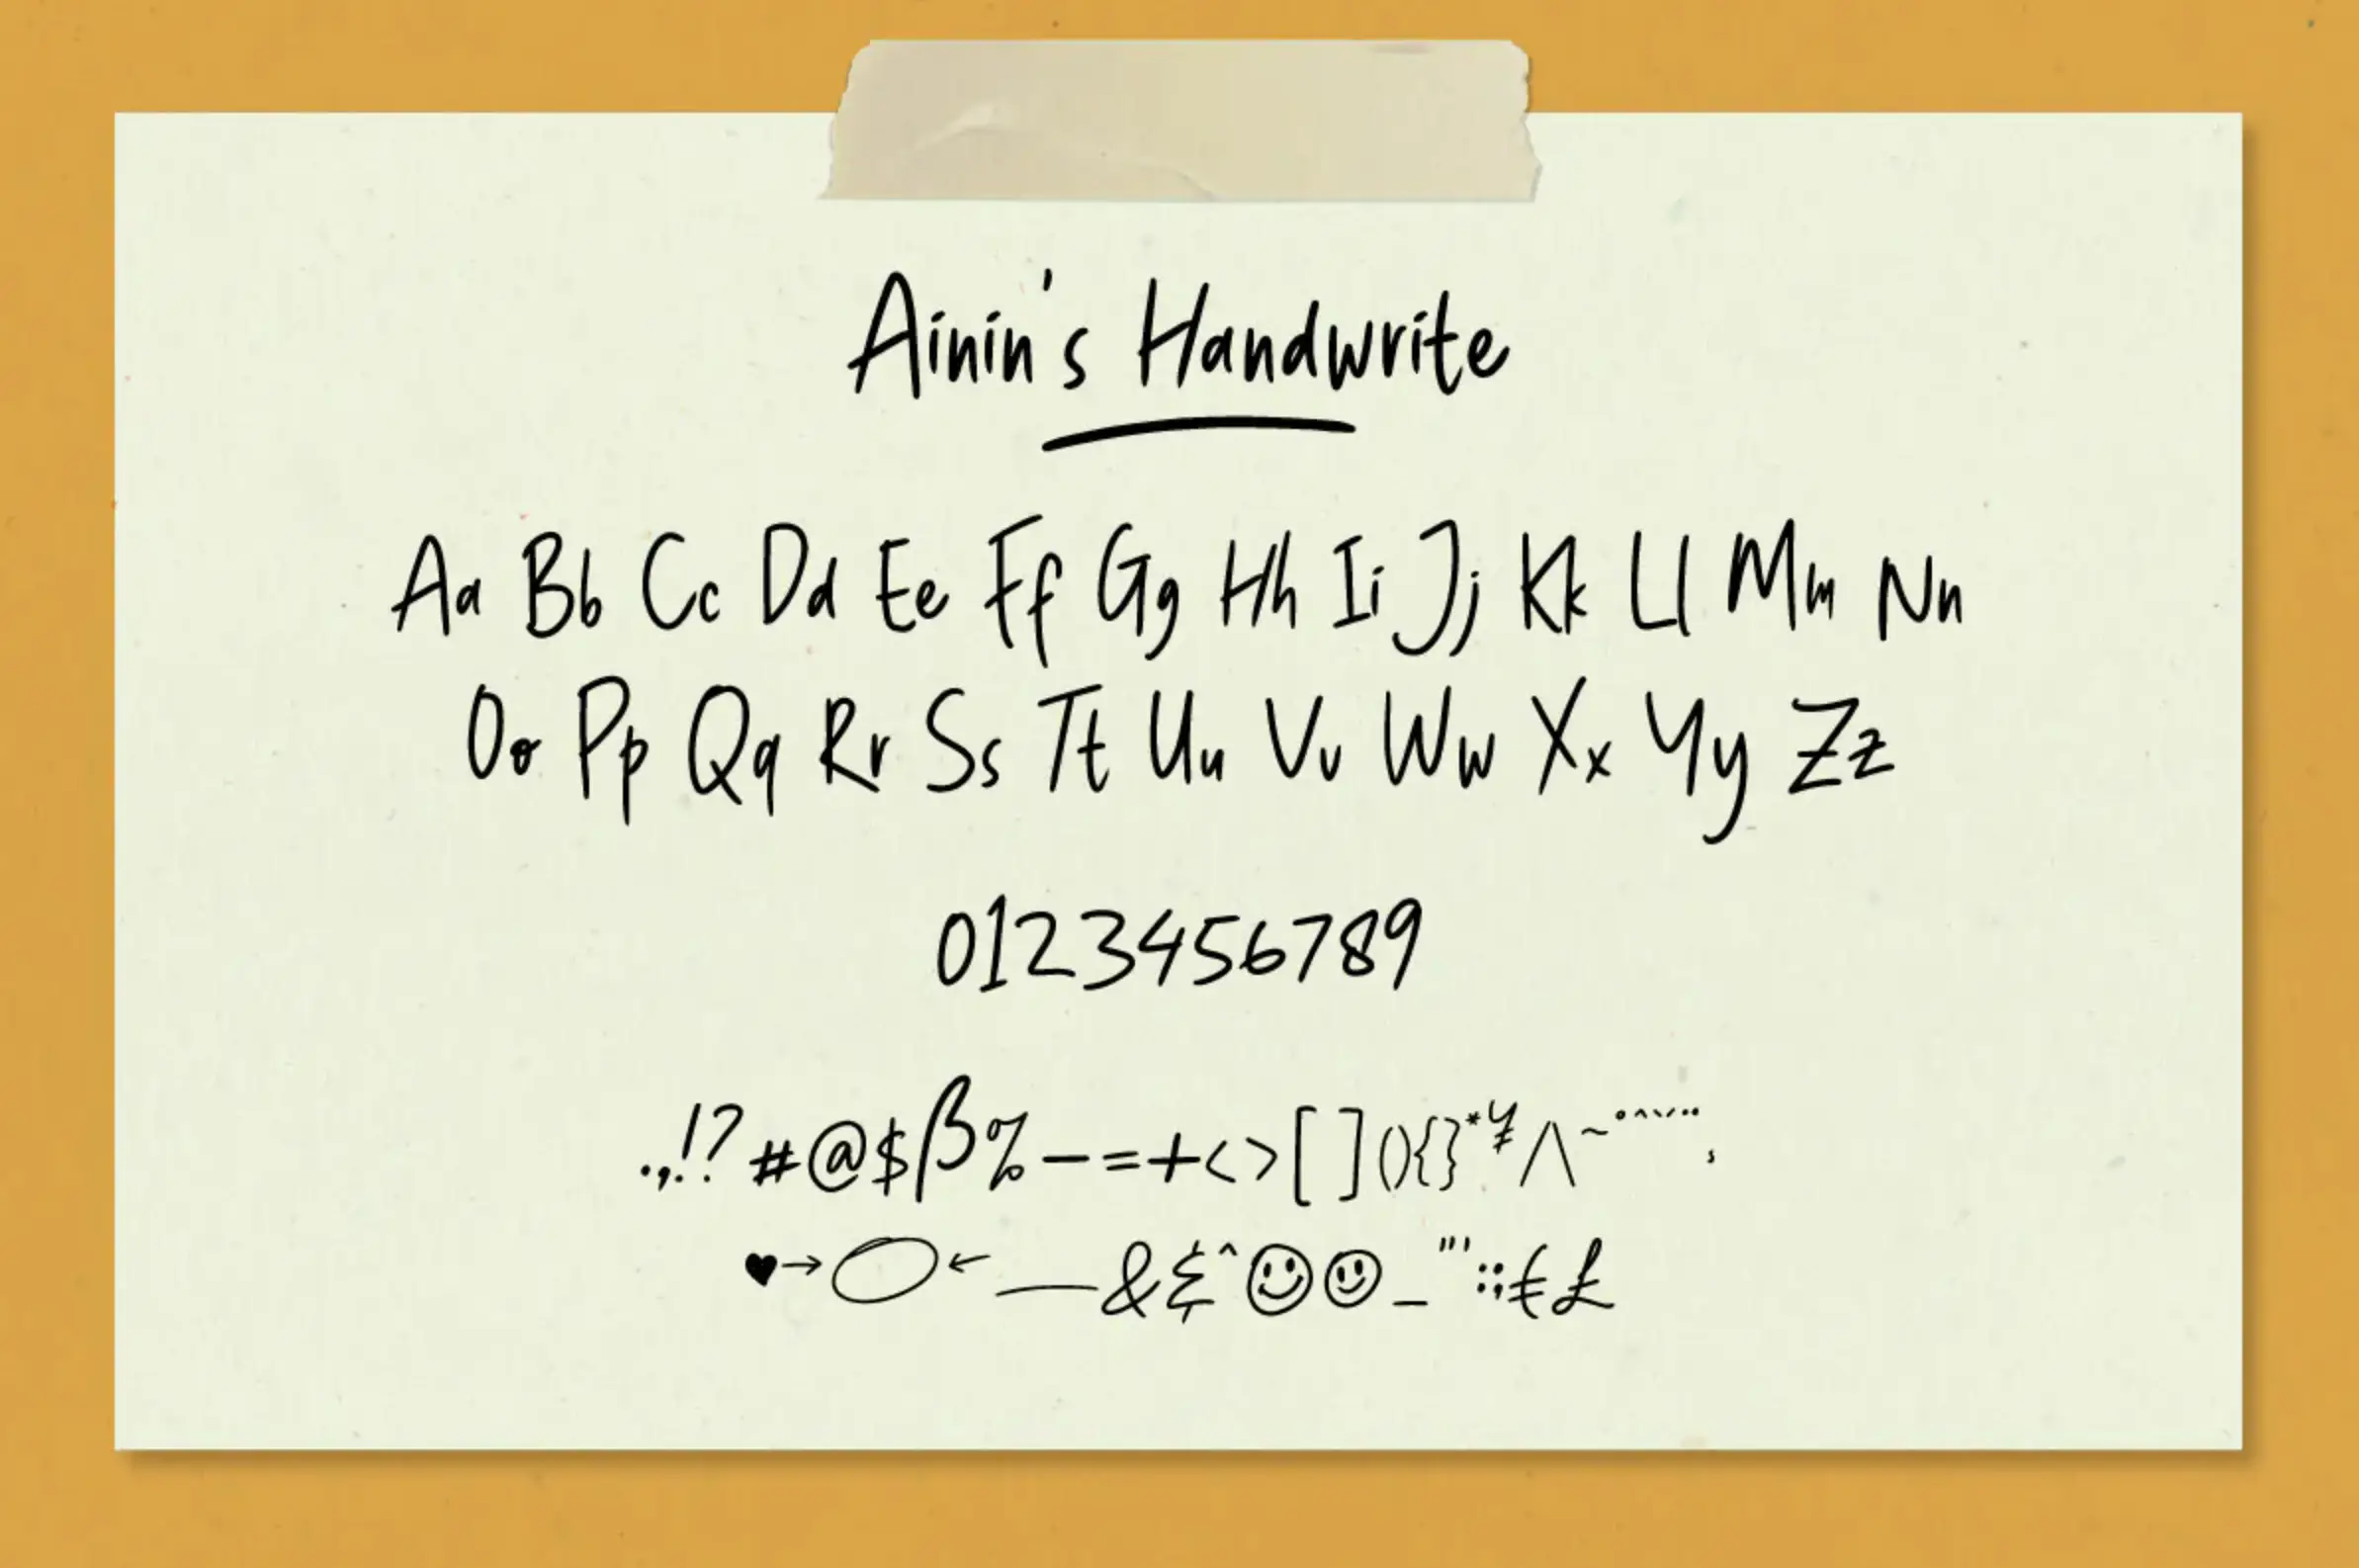 Ainin's Handwrite
Aa Bb Cc Dd Ee Ff Gg Hh Ii Jj Kk Ll Mm Nn
Oo Pp Qq Rr Ss Tt Uu Vv Ww Xx Yy Zz
0123456789
.,!?#@$β%-=+<>[](){}*¥/\~°^ˇ´¨¸
♥→◯←—&&^☺☺_"':;€£